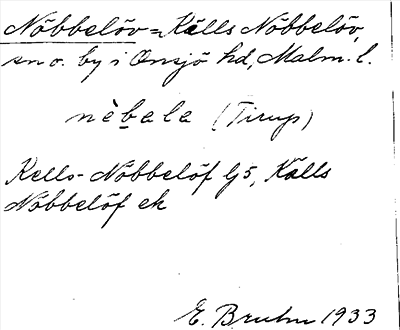 Nöbbelöv = Källs Nöbbelöv,
sn o. by i Onsjö hd, Malm. l.
nèbala (Tirup)
Kells-Nöbbelöf Gj5, Källs
Nöbbelöf ek
E. Bruhn 1933